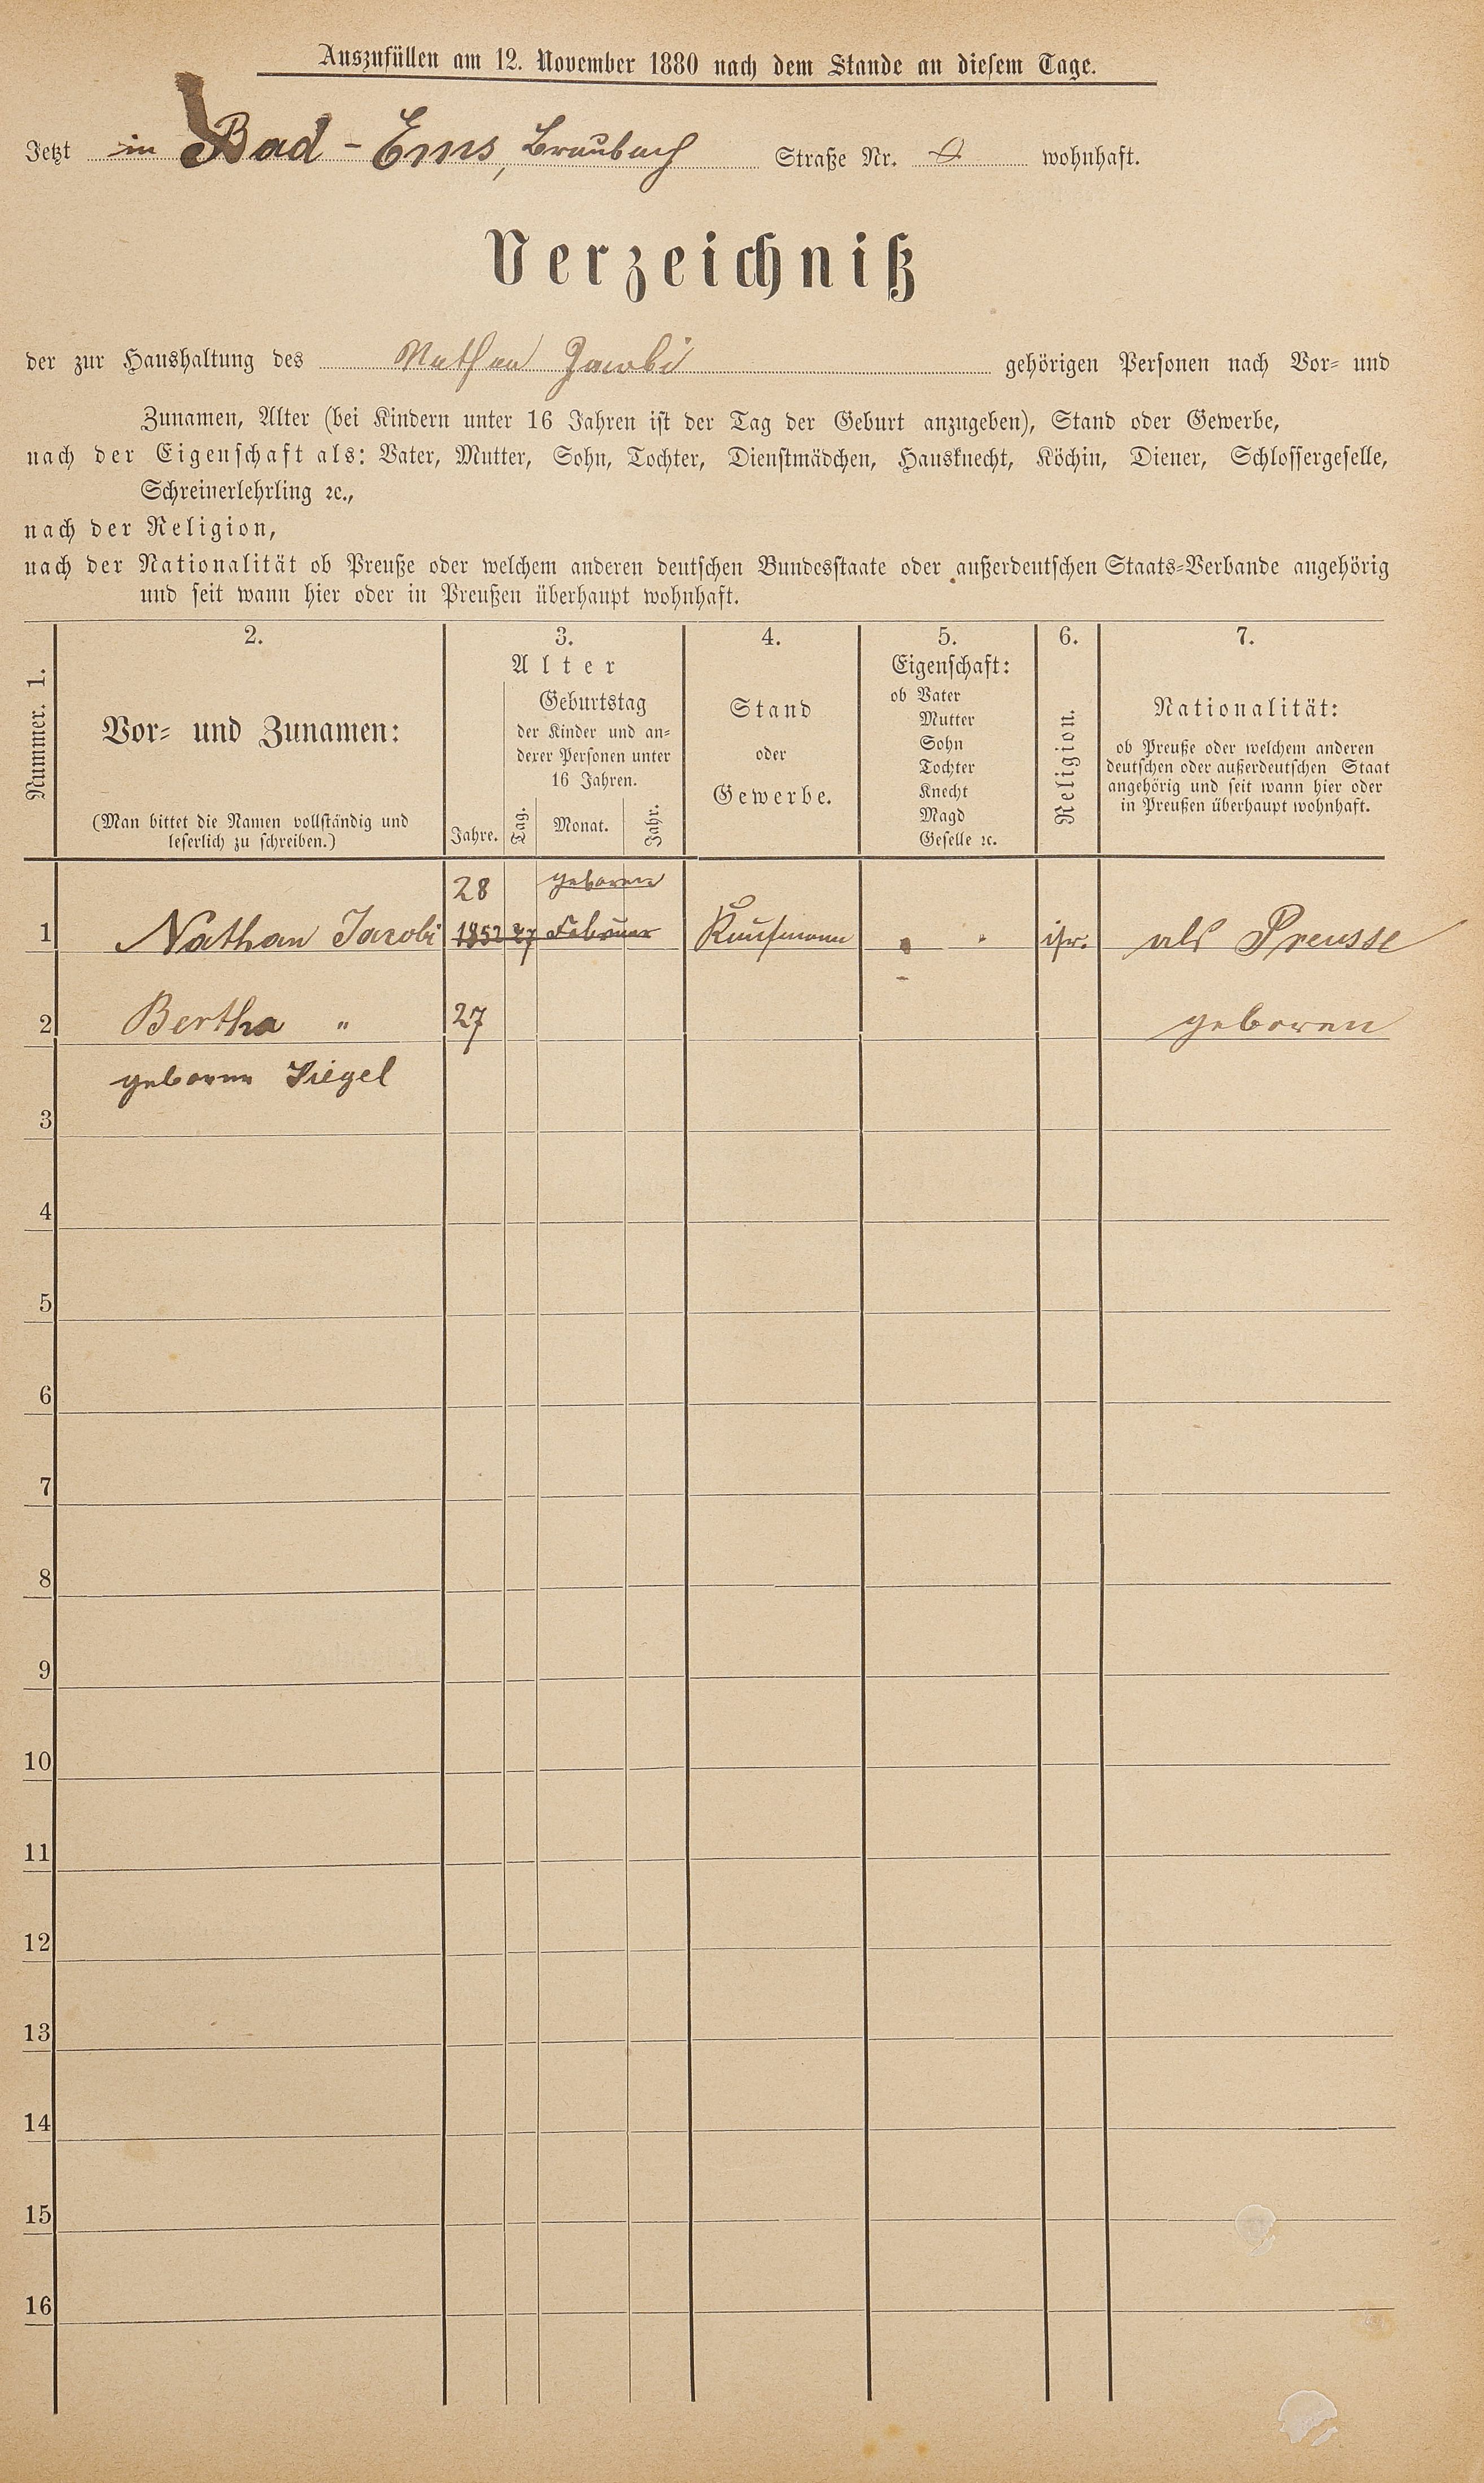 Auszufüllen am 12. November 1880 nach dem Stande an diesem Tage.
Jetzt in Bad-Ems, Braubach Straße Nr. wohnhaft.
Verzeichniß
der zur Haushaltung des Nathan Jacobi gehörigen Personen nach Vor- und
Zunamen, Alter (bei Kindern unter 16 Jahren ist der Tag der Geburt anzugeben), Stand oder Gewerbe,
nach der Eigenschaft als: Vater, Mutter, Sohn, Tochter, Dienstmädchen, Hausknecht, Köchin, Diener, Schlossergeselle,
Schreinerlehrling ꝛc.,
nach der Religion,
nach der Nationalität ob Preuße oder welchem anderen deutschen Bundesstaate oder außerdeutschen Staats-Verbande angehörig
und seit wann hier oder in Preußen überhaupt wohnhaft.
Nummer. 1.
2.
Vor- und Zunamen:
(Man bittet die Namen vollständig und
leserlich zu schreiben.)
3.
Alter
Jahre.
Geburtstag
der Kinder und an-
derer Personen unter
16 Jahren.
Tag.
Monat.
Jahr.
4.
Stand
oder
Gewerbe.
5.
Eigenschaft:
ob Vater
Mutter
Sohn
Tochter
Knecht
Magd
Geselle ꝛc.
6.
Religion.
7.
Nationalität:
ob Preuße oder welchem anderen
deutschen oder außerdeutschen Staat
angehörig und seit wann hier oder
in Preußen überhaupt wohnhaft.
28 geboren
1 Nathan Jacobi 1852 27 Februar Kaufmann isr. als Preusse
2 Bertha " 27 geboren
geborene Siegel
3
4
5
6
7
8
9
10
11
12
13
14
15
16